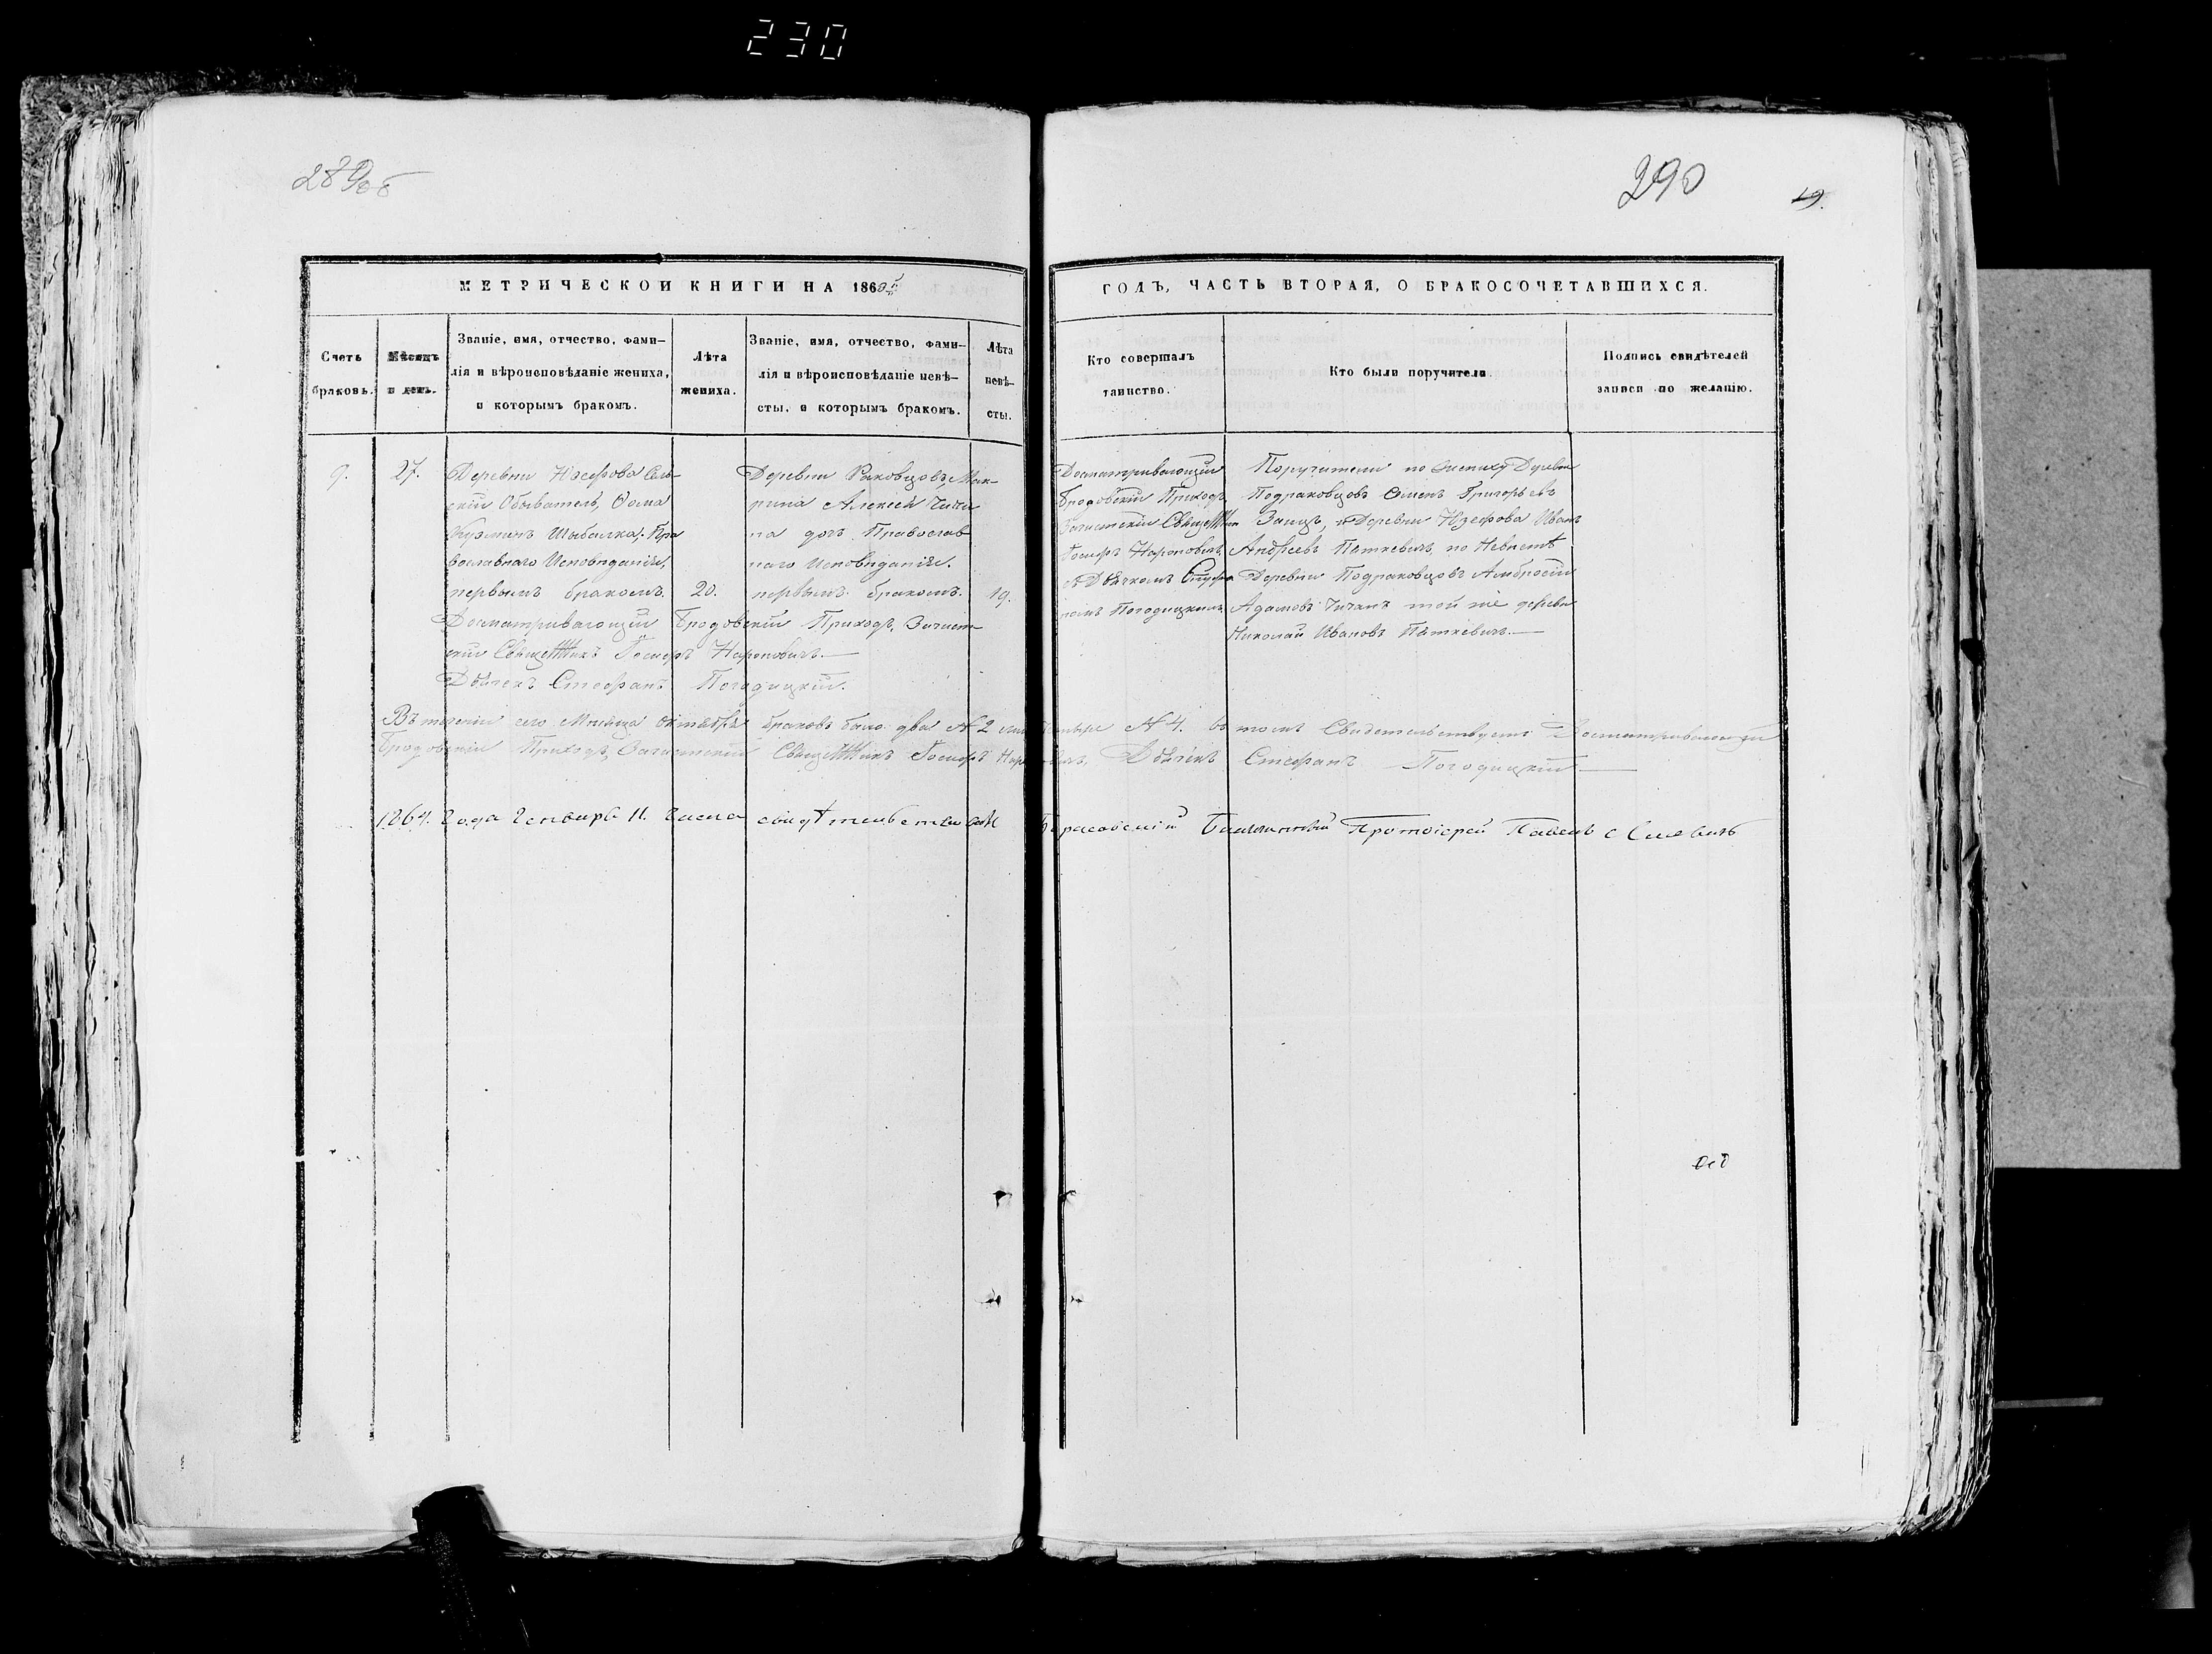 230
289об
290
19.
МЕТРИЧЕСКОЙ КНИГИ НА 186
ГОДЪ, ЧАСТЬ ВТОРАЯ, О БРАКОСОЧЕТАВШИХСЯ.
Счетъ
браковъ.
Мѣсяцъ
и день.
Званіе, имя, отчество, фами-
лія и вѣроисповѣданіе жениха,
и которымъ бракомъ.
Лѣта
жениха.
Званіе, имя, отчество, фами-
лія и вѣроисповѣданіе невѣ-
сты, и которымъ бракомъ.
Лѣта
невѣ-
сты.
Кто совершалъ
таинство.
Кто были поручители.
Подпись свидѣтелей
записи по желанію.
9.
27.
Деревни Юзефова Сель-
скій Обыватель, Ѳома
Кузминъ Шыбалка, Пра
вославнаго Исповѣданія,
первымъ бракомъ.
20.
Деревни Раковцовъ, Мак-
рина Алексѣй
на дочь Православ
наго Исповѣданія.
первымъ бракомъ.
19.
Досматривающій
Бродовскій Приходъ,
Зачистскій Священникъ
Госифъ Нароновичъ,
съ Дьячкомъ Стефа
номъ Погодицкимъ
Поручители по женихѣ Деревни
Подраковцовъ Семенъ Григорьевъ
Заяцъ, и Деревни Юзефова Иванъ
Андреевъ Пяткевичъ, по Невѣстѣ
Деревни Подраковцовъ Амбросій
Адамовъ Чичанъ той же деревни
Николай Ивановъ Пяткевичъ.
Досматривающій Бродовскій Приходъ, Зачист-
скій Священникъ Госифъ Нароновичъ.
Дьячекъ Стефанъ Погодицкій.
Въ теченіи сего Мѣсяца Октября браковъ было два № 2 № 4. въ томъ Свидетельствуетъ Досматривающій
Бродовскій Приходъ, Зачистскій Священникъ Госифъ Дьячекъ Стефанъ Погодицкій
1864. Года Генваря 11. Числа свидѣтельствовалъ Протоіерей Павелъ